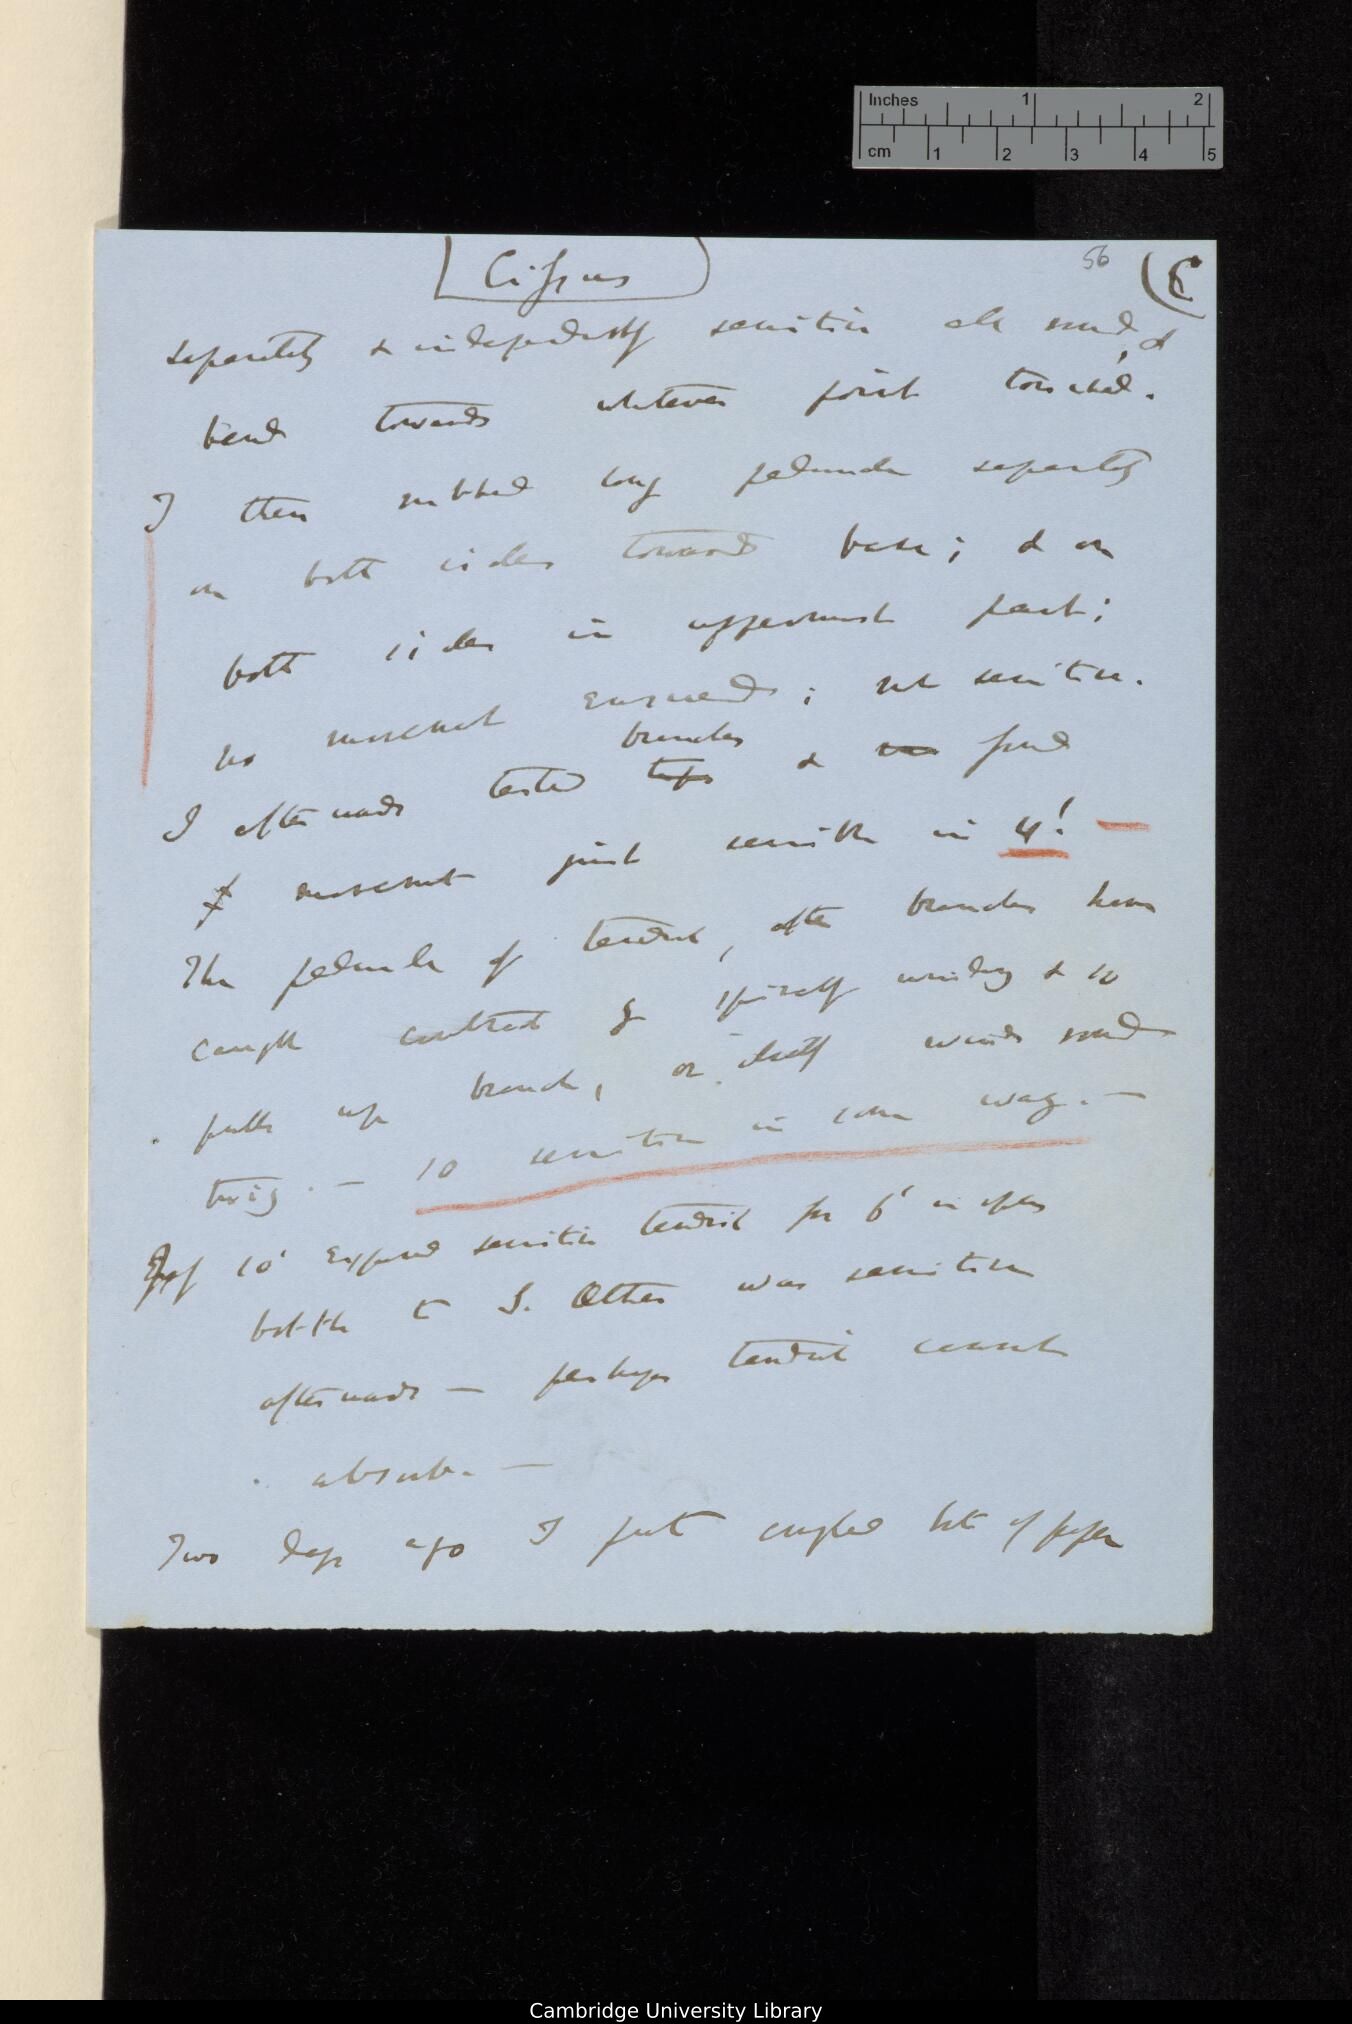 Inches 1 2
cm 1 2 3 4 5
Cissus
56
(6
separately & independently sensitive all round, &
bend towards whatever point touched.
I then rubbed long peduncle separately
on both sides toward base; & on
both sides in uppermost part;
no movement ensued; not sensitive.
branches
I afterwards tested tips & found
movement just sensible in 4'! —
The peduncle of tendril, after branches have
caught contract by spirally winding & so
pulls up branch, or itself winds round
twig. — so sensitive in some way. —
10' Exposed sensitive tendril for 6' in open
bottle to S. Other was sensitive
afterwards — perhaps tendril cannot
absorb. —
Two days ago I put bit of paper
Cambridge University Library